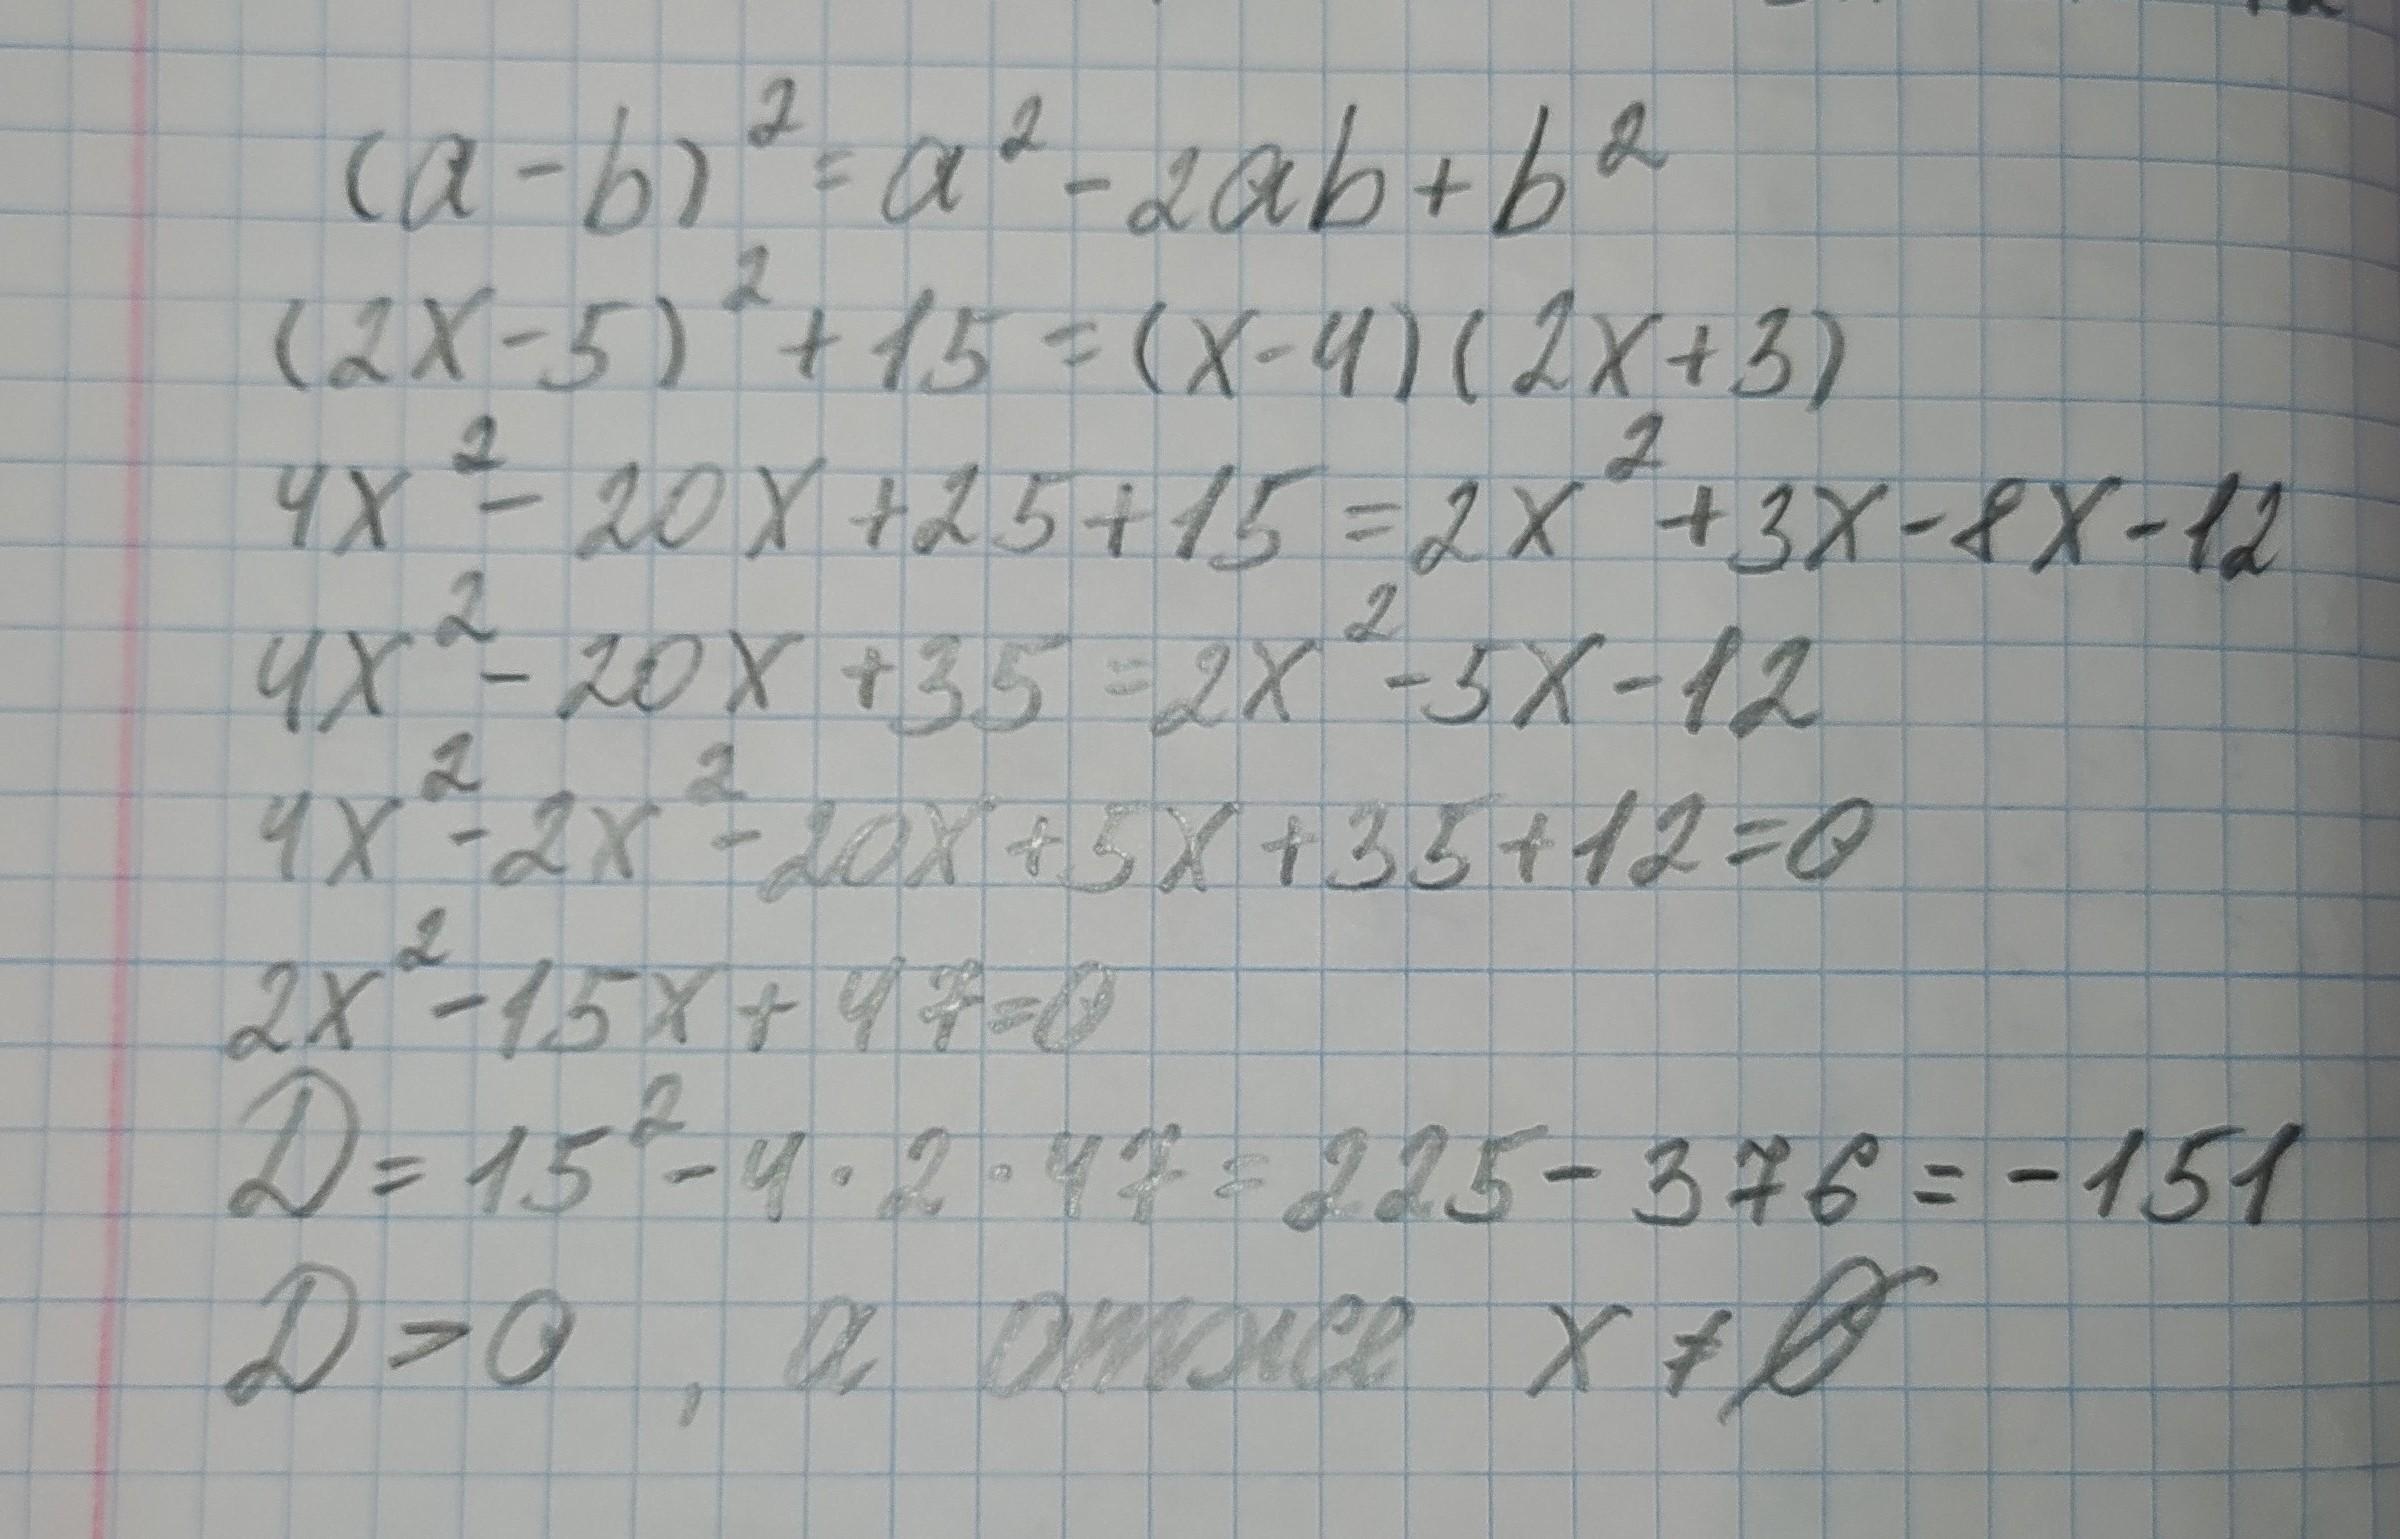 (a - b)² = a² - 2ab + b²
(2x - 5)² + 15 = (x - 4)(2x + 3)
4x² - 20x + 25 + 15 = 2x² + 3x - 8x - 12
4x² - 20x + 35 = 2x² - 5x - 12
4x² - 2x² - 20x + 5x + 35 + 12 = 0
2x² - 15x + 47 = 0
D = 15² - 4 · 2 · 47 = 225 - 376 = -151
D > 0, а отже x ≠ Ø